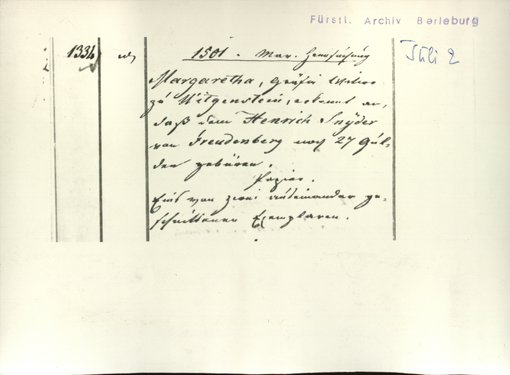 Fürstl. Archiv Berleburg
1334 1501. Mar. Heimsuchung Juli 2
Margaretha, Gräfin Witwe
zu Witgenstein, erkennt an,
daß dem Henrich Snÿder
von Freudenberg noch 27 Gul-
den gebüren.
Papier.
Eins von zwei auseinander ge-
schnittenen Exemplaren.